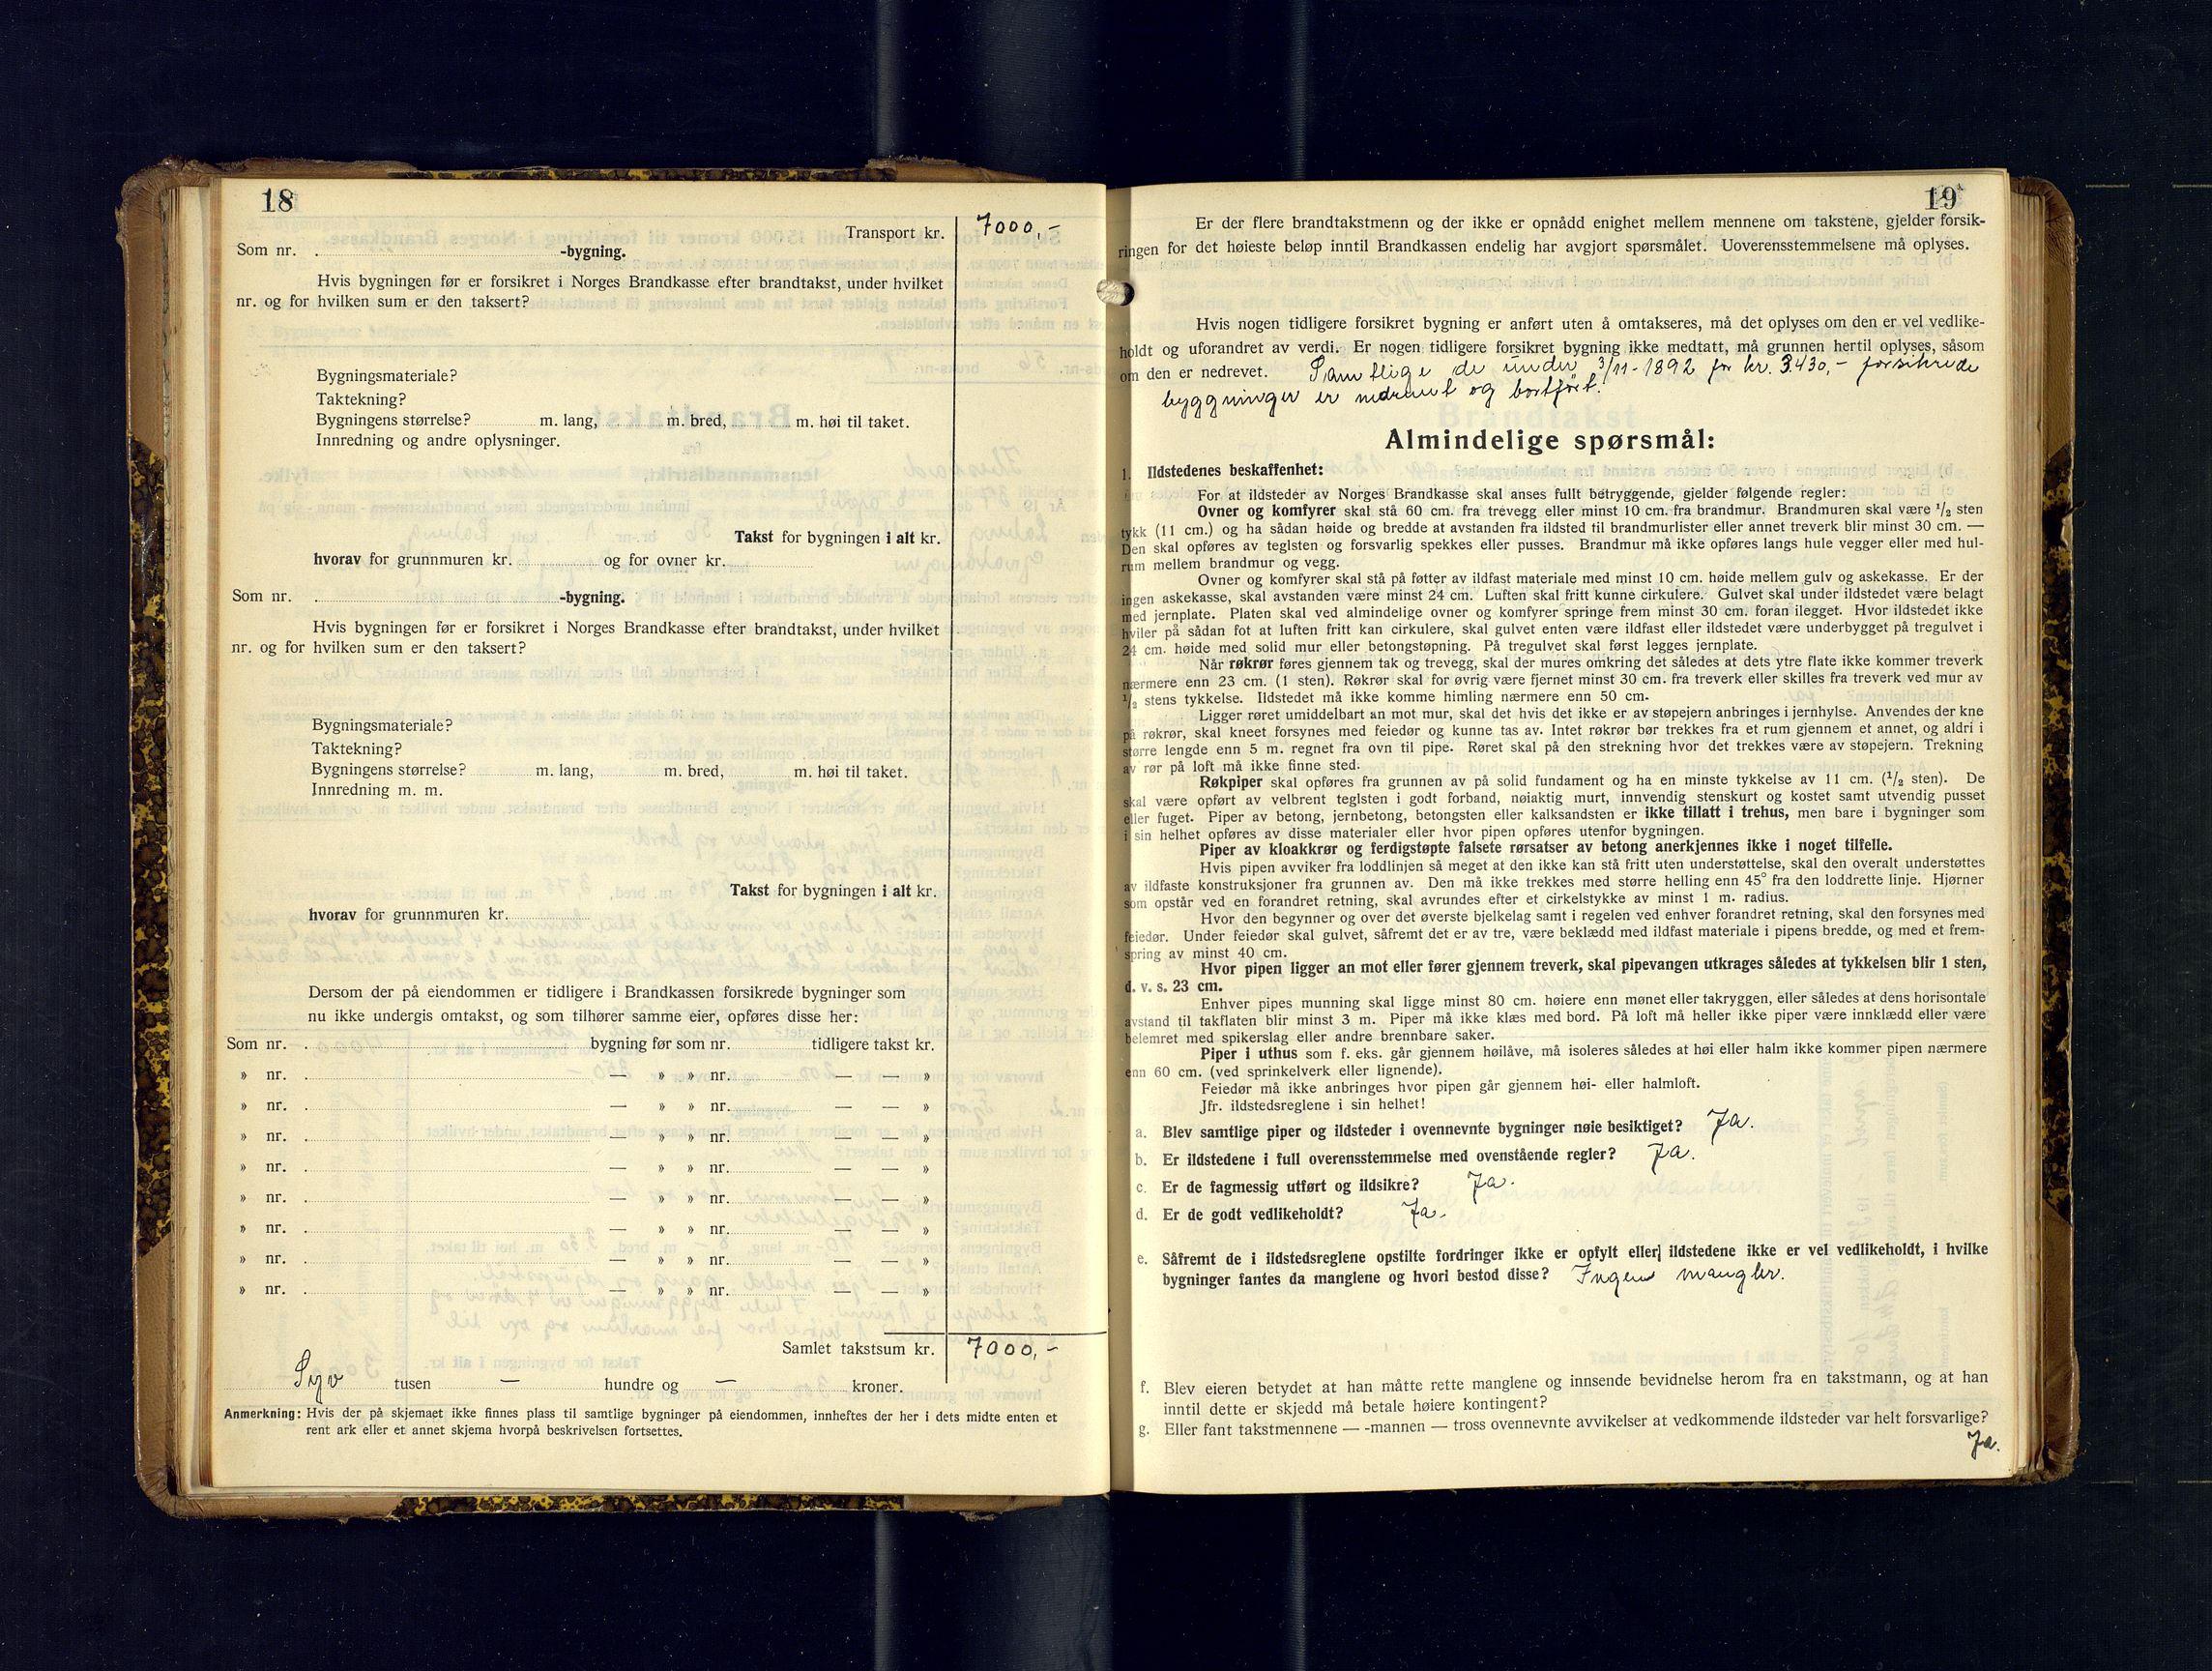 18
Transport kr. 7000,-
Som nr. -bygning.
Hvis bygningen før er forsikret i Norges Brandkasse efter brandtakst, under hvilket
nr. og for hvilken sum er den taksert?
Bygningsmateriale?
Taktekning?
Bygningens størrelse? m. lang, m. bred, m. høi til taket.
Innredning og andre oplysninger.
Takst for bygningen i alt kr.
hvorav for grunnmuren kr. og for ovner kr.
Som nr. -bygning.
Hvis bygningen før er forsikret i Norges Brandkasse efter brandtakst, under hvilket
nr. og for hvilken sum er den taksert?
Bygningsmateriale?
Taktekning?
Bygningens størrelse? m. lang, m. bred, m. høi til taket.
Innredning m. m.
Takst for bygningen i alt kr.
hvorav for grunnmuren kr.
Dersom der på eiendommen er tidligere i Brandkassen forsikrede bygninger som
nu ikke undergis omtakst, og som tilhører samme eier, opføres disse her:
Som nr. bygning før som nr. tidligere takst kr.
» nr. — » » nr. — — »
» nr. — » » nr. — — »
» nr. — » » nr. — — »
» nr. — » » nr. — — »
» nr. — » » nr. — — »
» nr. — » » nr. — — »
» nr. — » » nr. — — »
» nr. — » » nr. — — »
Samlet takstsum kr. 7000,-
Syv tusen — hundre og — kroner.
Anmerkning: Hvis der på skjemaet ikke finnes plass til samtlige bygninger på eiendommen, innheftes der her i dets midte enten et
rent ark eller et annet skjema hvorpå beskrivelsen fortsettes.
19
Er der flere brandtakstmenn og der ikke er opnådd enighet mellem mennene om takstene, gjelder forsik-
ringen for det høieste beløp inntil Brandkassen endelig har avgjort spørsmålet. Uoverensstemmelsene må oplyses.
Hvis nogen tidligere forsikret bygning er anført uten å omtakseres, må det oplyses om den er vel vedlike-
holdt og uforandret av verdi. Er nogen tidligere forsikret bygning ikke medtatt, må grunnen hertil oplyses, såsom
om den er nedrevet. Samtlige de under 3/11-1892 for kr. 3430,- forsikrede
byggninger er nedrevet og bortført.
Almindelige spørsmål:
1. Ildstedenes beskaffenhet:
For at ildsteder av Norges Brandkasse skal anses fullt betryggende, gjelder følgende regler:
Ovner og komfyrer skal stå 60 cm. fra trevegg eller minst 10 cm. fra brandmur. Brandmuren skal være 1/2 sten
tykk (11 cm.) og ha sådan høide og bredde at avstanden fra ildsted til brandmurlister eller annet treverk blir minst 30 cm. —
Den skal opføres av teglsten og forsvarlig spekkes eller pusses. Brandmur må ikke opføres langs hule vegger eller med hul-
rum mellem brandmur og vegg.
Ovner og komfyrer skal stå på føtter av ildfast materiale med minst 10 cm. høide mellem gulv og askekasse. Er der
ingen askekasse, skal avstanden være minst 24 cm. Luften skal fritt kunne cirkulere. Gulvet skal under ildstedet være belagt
med jernplate. Platen skal ved almindelige ovner og komfyrer springe frem minst 30 cm. foran ilegget. Hvor ildstedet ikke
hviler på sådan fot at luften fritt kan cirkulere, skal gulvet enten være ildfast eller ildstedet være underbygget på tregulvet i
24 cm. høide med solid mur eller betongstøpning. På tregulvet skal først legges jernplate.
Når røkrør føres gjennem tak og trevegg, skal der mures omkring det således at dets ytre flate ikke kommer treverk
nærmere enn 23 cm. (1 sten). Røkrør skal for øvrig være fjernet minst 30 cm. fra treverk eller skilles fra treverk ved mur av
1/2 stens tykkelse. Ildstedet må ikke komme himling nærmere enn 50 cm.
Ligger røret umiddelbart an mot mur, skal det hvis det ikke er av støpejern anbringes i jernhylse. Anvendes der kne
på røkrør, skal kneet forsynes med feiedør og kunne tas av. Intet røkrør bør trekkes fra et rum gjennem et annet, og aldri i
større lengde enn 5 m. regnet fra ovn til pipe. Røret skal på den strekning hvor det trekkes være av støpejern. Trekning
av rør på loft må ikke finne sted.
Røkpiper skal opføres fra grunnen av på solid fundament og ha en minste tykkelse av 11 cm. (1/2 sten). De
skal være opført av velbrent teglsten i godt forband, nøiaktig murt, innvendig stenskurt og kostet samt utvendig pusset
eller fuget. Piper av betong, jernbetong, betongsten eller kalksandsten er ikke tillatt i trehus, men bare i bygninger som
i sin helhet opføres av disse materialer eller hvor pipen opføres utenfor bygningen.
Piper av kloakkrør og ferdigstøpte falsete rørsatser av betong anerkjennes ikke i noget tilfelle.
Hvis pipen avviker fra loddlinjen så meget at den ikke kan stå fritt uten understøttelse, skal den overalt understøttes
av ildfaste konstruksjoner fra grunnen av. Den må ikke trekkes med større helling enn 45° fra den loddrette linje. Hjørner
som opstår ved en forandret retning, skal avrundes efter et cirkelstykke av minst 1 m. radius.
Hvor den begynner og over det øverste bjelkelag samt i regelen ved enhver forandret retning, skal den forsynes med
feiedør. Under feiedør skal gulvet, såfremt det er av tre, være beklædd med ildfast materiale i pipens bredde, og med et frem-
spring av minst 40 cm.
Hvor pipen ligger an mot eller fører gjennem treverk, skal pipevangen utkrages således at tykkelsen blir 1 sten,
d. v. s. 23 cm.
Enhver pipes munning skal ligge minst 80 cm. høiere enn mønet eller takryggen, eller således at dens horisontale
avstand til takflaten blir minst 3 m. Piper må ikke klæs med bord. På loft må heller ikke piper være innklædd eller være
belemret med spikerslag eller andre brennbare saker.
Piper i uthus som f. eks. går gjennem høilåve, må isoleres således at høi eller halm ikke kommer pipen nærmere
enn 60 cm. (ved sprinkelverk eller lignende).
Feiedør må ikke anbringes hvor pipen går gjennem høi- eller halmloft.
Jfr. ildstedsreglene i sin helhet!
a. Blev samtlige piper og ildsteder i ovennevnte bygninger nøie besiktiget? Ja.
b. Er ildstedene i full overensstemmelse med ovenstående regler? Ja.
c. Er de fagmessig utført og ildsikre? Ja.
d. Er de godt vedlikeholdt? Ja.
e. Såfremt de i ildstedsreglene opstilte fordringer ikke er opfylt eller ildstedene ikke er vel vedlikeholdt, i hvilke
bygninger fantes da manglene og hvori bestod disse? Ingen mangler.
f. Blev eieren betydet at han måtte rette manglene og innsende bevidnelse herom fra en takstmann, og at han
inntil dette er skjedd må betale høiere kontingent?
g. Eller fant takstmennene — -mannen — tross ovennevnte avvikelser at vedkommende ildsteder var helt forsvarlige?
Ja.